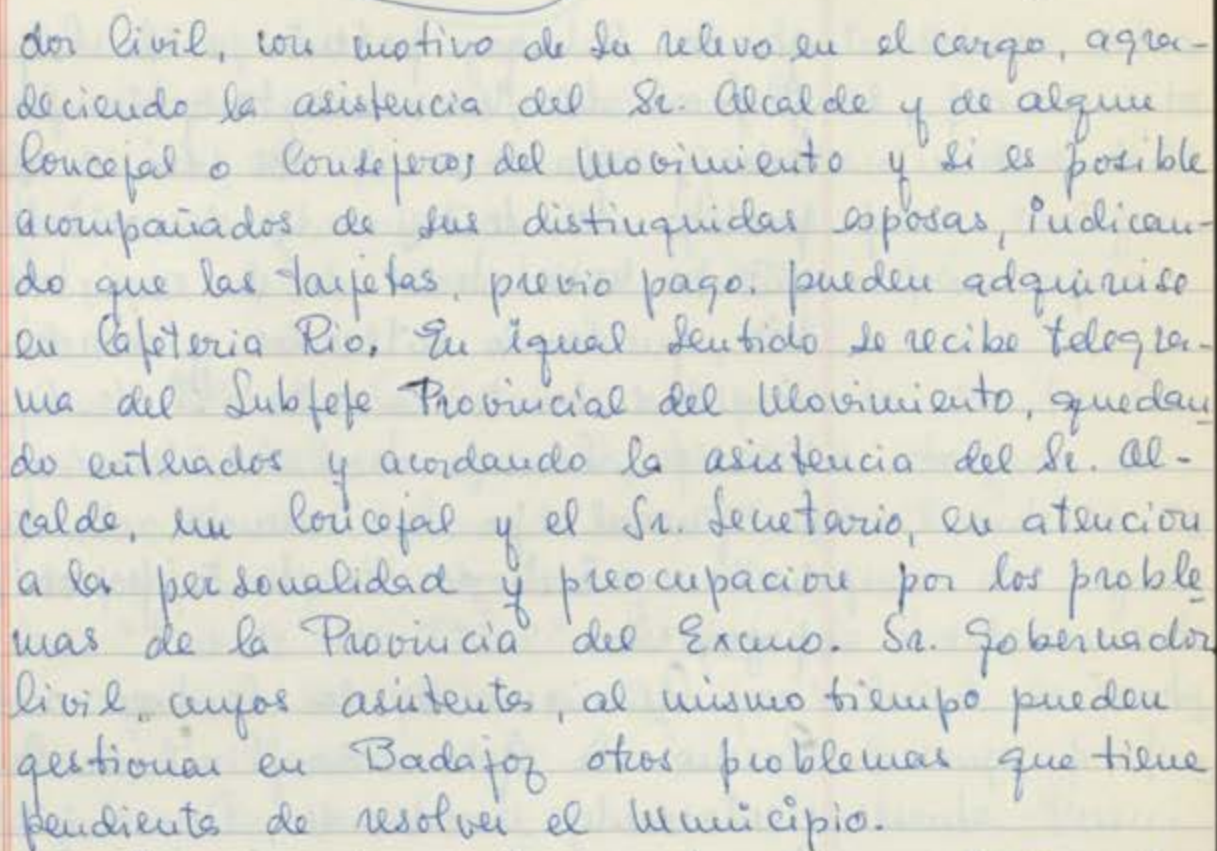 dor Civil, con motivo de su relevo en el cargo, agra-
deciendo la asistencia del Sr. Alcalde y de algun
Concejal o Consejeros del Movimiento y si es posible
acompañados de sus distinguidas esposas, indican-
do que las tarjetas, previo pago, pueden adquirirse
en Cafeteria Rio. En igual sentido se recibe telegra-
ma del Subjefe Provincial del Movimiento, quedan
do enterados y acordando la asistencia del Sr. Al-
calde, un Concejal y el Sr. Secretario, en atencion
a la personalidad y preocupacion por los proble
mas de la Provincia del Excmo. Sr. Gobernador
Civil, cuyos asistentes, al mismo tiempo pueden
gestionar en Badajoz otros problemas que tiene
pendientes de resolver el Municipio.